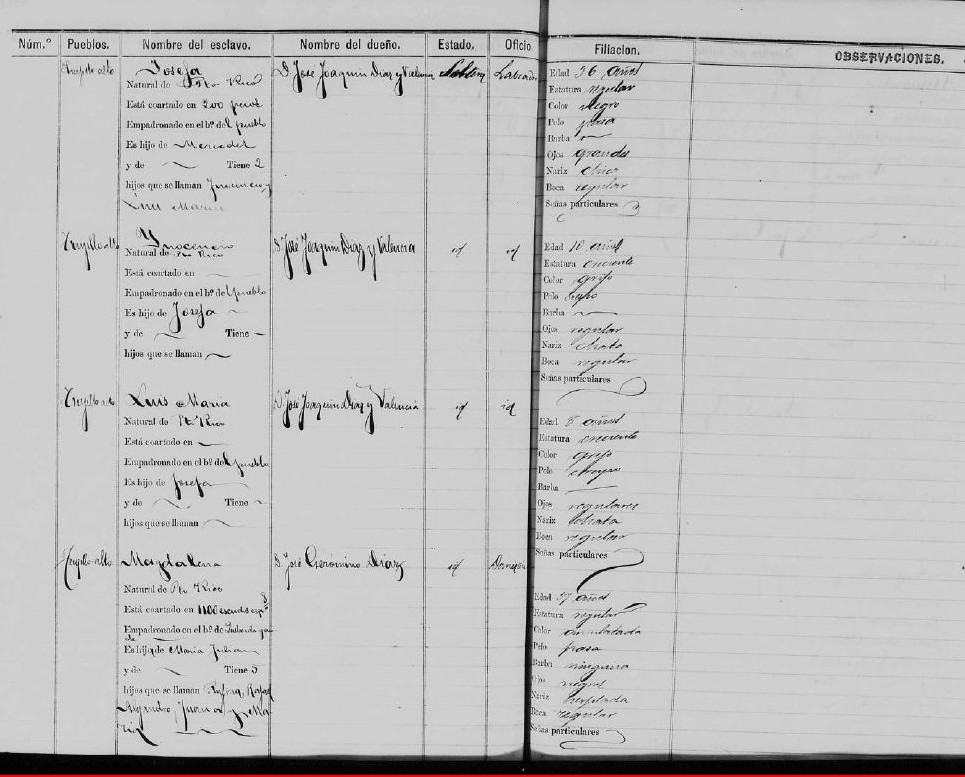 Núm.° Pueblos. Nombre del esclavo. Nombre del dueño. Estado, Oficio Filiacion. OBSERVACIONES.
Trujillo alto Josefa D. José Joaquin Diaz y Valencia Soltera Labrador
Natural de Pto Rico
Está coartado en 200 pesos
Empadronado en el bº del pueblo
Es hijo de Mercedes
y de Tiene 2
hijos que se llaman Ynocencio y
Luis Maria
Edad 36 años
Estatura regular
Color negro
Pelo pasa
Barba
Ojos grandes
Nariz
Boca regular
Señas particulares
Trujillo alto Ynocencio D. José Joaquin Diaz y Valencia id id
Natural de Pto Rico
Está coartado en
Empadronado en el bº del pueblo
Es hijo de Josefa
y de Tiene
hijos que se llaman
Edad 10 años
Estatura creciente
Color grifo
Pelo
Barba
Ojos regular
Nariz chata
Boca regular
Señas particulares
Trujillo alto Luis Maria D. José Joaquin Diaz y Valencia id id
Natural de Pto Rico
Está coartado en
Empadronado en el bº del pueblo
Es hijo de Josefa
y de Tiene
hijos que se llaman
Edad 8 años
Estatura creciente
Color grifo
Pelo
Barba
Ojos regulares
Nariz chata
Boca regular
Señas particulares
Trujillo alto Magdalena D. José Gerónimo Diaz id
Natural de Pto Rico
Está coartado en 1100 escudos
Empadronado en el bº de
Es hija de Maria Julian
y de Tiene 5
hijos que se llaman Rufina, Rafael
Alejandro, Juana y Ma
ria
Edad 37 años
Estatura regular
Color amulatada
Pelo pasa
Barba ninguna
Ojos negros
Nariz
Boca regular
Señas particulares